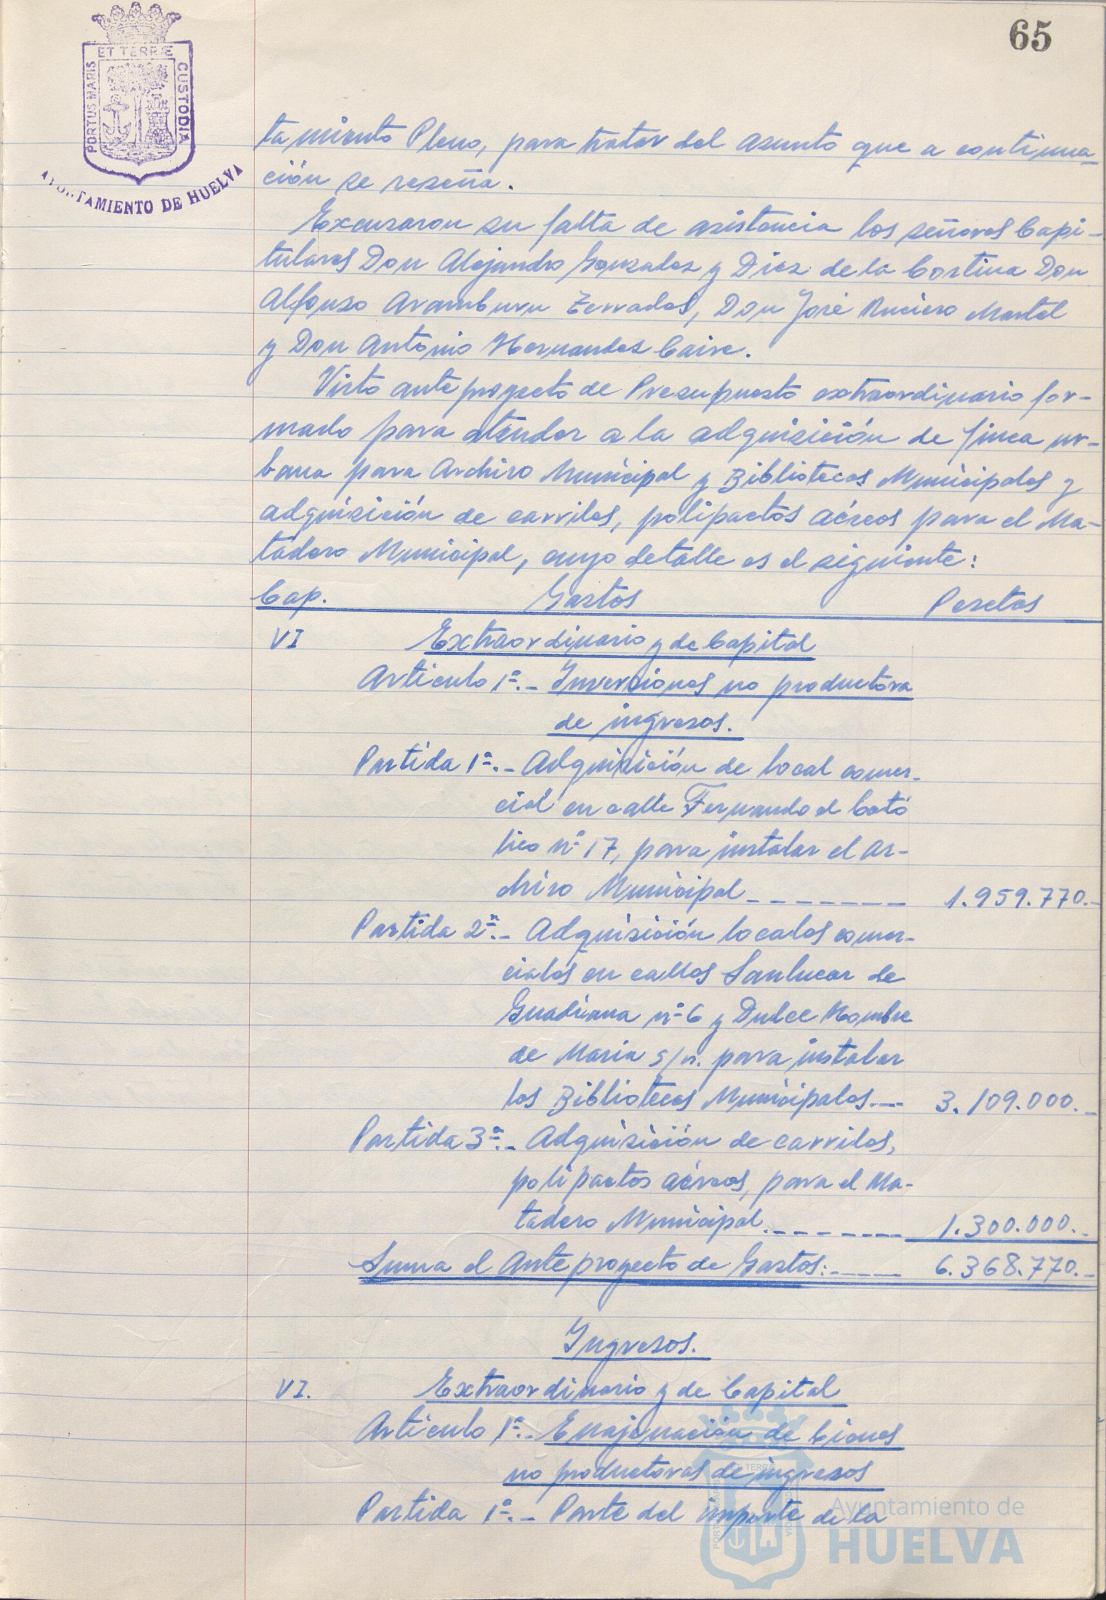 65
PORTUS MARIS ET TERRÆ CUSTODIA
AYUNTAMIENTO DE HUELVA
tamiento Pleno, para tratar del asunto que a continua-
ción se reseña.
Excusaron su falta de asistencia los señores Capi-
tulares Don Alejandro Gonzalez y Diez de la Cortina Don
Alfonso Aramburu Terrades, Don José Ruciero Martel
y Don Antonio Hernandez Caire.
Visto anteproyecto de Presupuesto extraordinario for-
mado para atender a la adquisición de finca ur-
bana para Archivo Municipal y Bibliotecas Municipales y
adquisición de carriles, polipactos aéreos para el Ma-
tadero Municipal, cuyo detalle es el siguiente:
Cap. Gastos Pesetas
VI Extraordinario y de Capital
Articulo 1º.- Inversiones no productora
de ingresos.
Partida 1ª.- Adquisición de local comer-
cial en calle Fernando el Cató
lico nº 17, para instalar el Ar-
chivo Municipal------- 1.959.770.-
Partida 2ª.- Adquisición locales comer-
ciales en calles Sanlucar de
Guadiana nº 6 y Dulce Nombre
de Maria s/n. para instalar
las Bibliotecas Municipales.-- 3.109.000.-
Partida 3ª.- Adquisición de carriles,
polipactos aéreos, para el Ma-
tadero Municipal.------- 1.300.000.-
Suma el Anteproyecto de Gastos:.---- 6.368.770.-
Ingresos.
VI. Extraordinario y de Capital
Articulo 1º.- Enajenación de bienes
no productoras de ingresos
Partida 1ª.- Parte del importe de la
Ayuntamiento de
HUELVA